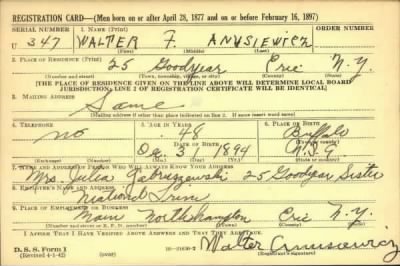 REGISTRATION CARD—(Men born on or after April 28, 1877 and on or before February 16, 1897)
SERIAL NUMBER 1. NAME (Print) ORDER NUMBER
U 347 WALTER F. ANUSIEWICZ
(First) (Middle) (Last)
2. PLACE OF RESIDENCE (Print)
25 Goodyear Erie N.Y.
(Number and street) (Town, township, village, or city) (County) (State)
[THE PLACE OF RESIDENCE GIVEN ON THE LINE ABOVE WILL DETERMINE LOCAL BOARD
JURISDICTION; LINE 2 OF REGISTRATION CERTIFICATE WILL BE IDENTICAL]
3. MAILING ADDRESS
Same
(Mailing address if other than place indicated on line 2. If same insert word same)
4. TELEPHONE 5. AGE IN YEARS 6. PLACE OF BIRTH
no 48 Buffalo
DATE OF BIRTH (Town or county)
31 1894
(Mo.) (Day) (Yr.) (State or country)
7. NAME AND ADDRESS OF PERSON WHO WILL ALWAYS KNOW YOUR ADDRESS
Mrs. Julia 25 Goodyear Sister
8. EMPLOYER'S NAME AND ADDRESS
National
9. PLACE OF EMPLOYMENT OR BUSINESS
Main Northhampton Erie N.Y.
(Number and street or R. F. D. number) (Town) (County) (State)
I AFFIRM THAT I HAVE VERIFIED ABOVE ANSWERS AND THAT THEY ARE TRUE.
D. S. S. Form 1
(Revised 4-1-42) (over) Walter Anusiewicz
(Registrant's signature)